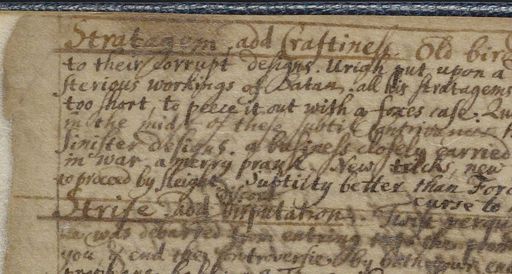 Stratagem. add Craftiness. Old bir
to their corrupt designs. Uriah put upon a
sterious workings of Satan. all his stratagems
too short, to peece it out with a foxes case.
in the midst of these subtil contrivances
sinister designs. a business closely carried
in war. a merry prank. New tricks, new
to proceed by sleight. Subtilty better than Forc
curse to
Strife. add Disputation.
was debarred from entring
you, & end the controversie. by both